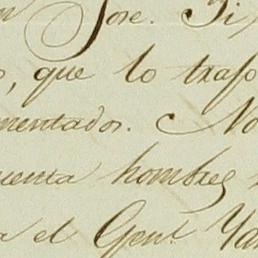 n Jose. Si
, que lo traso
mentados. No
uenta hombres
a el Genl. Va